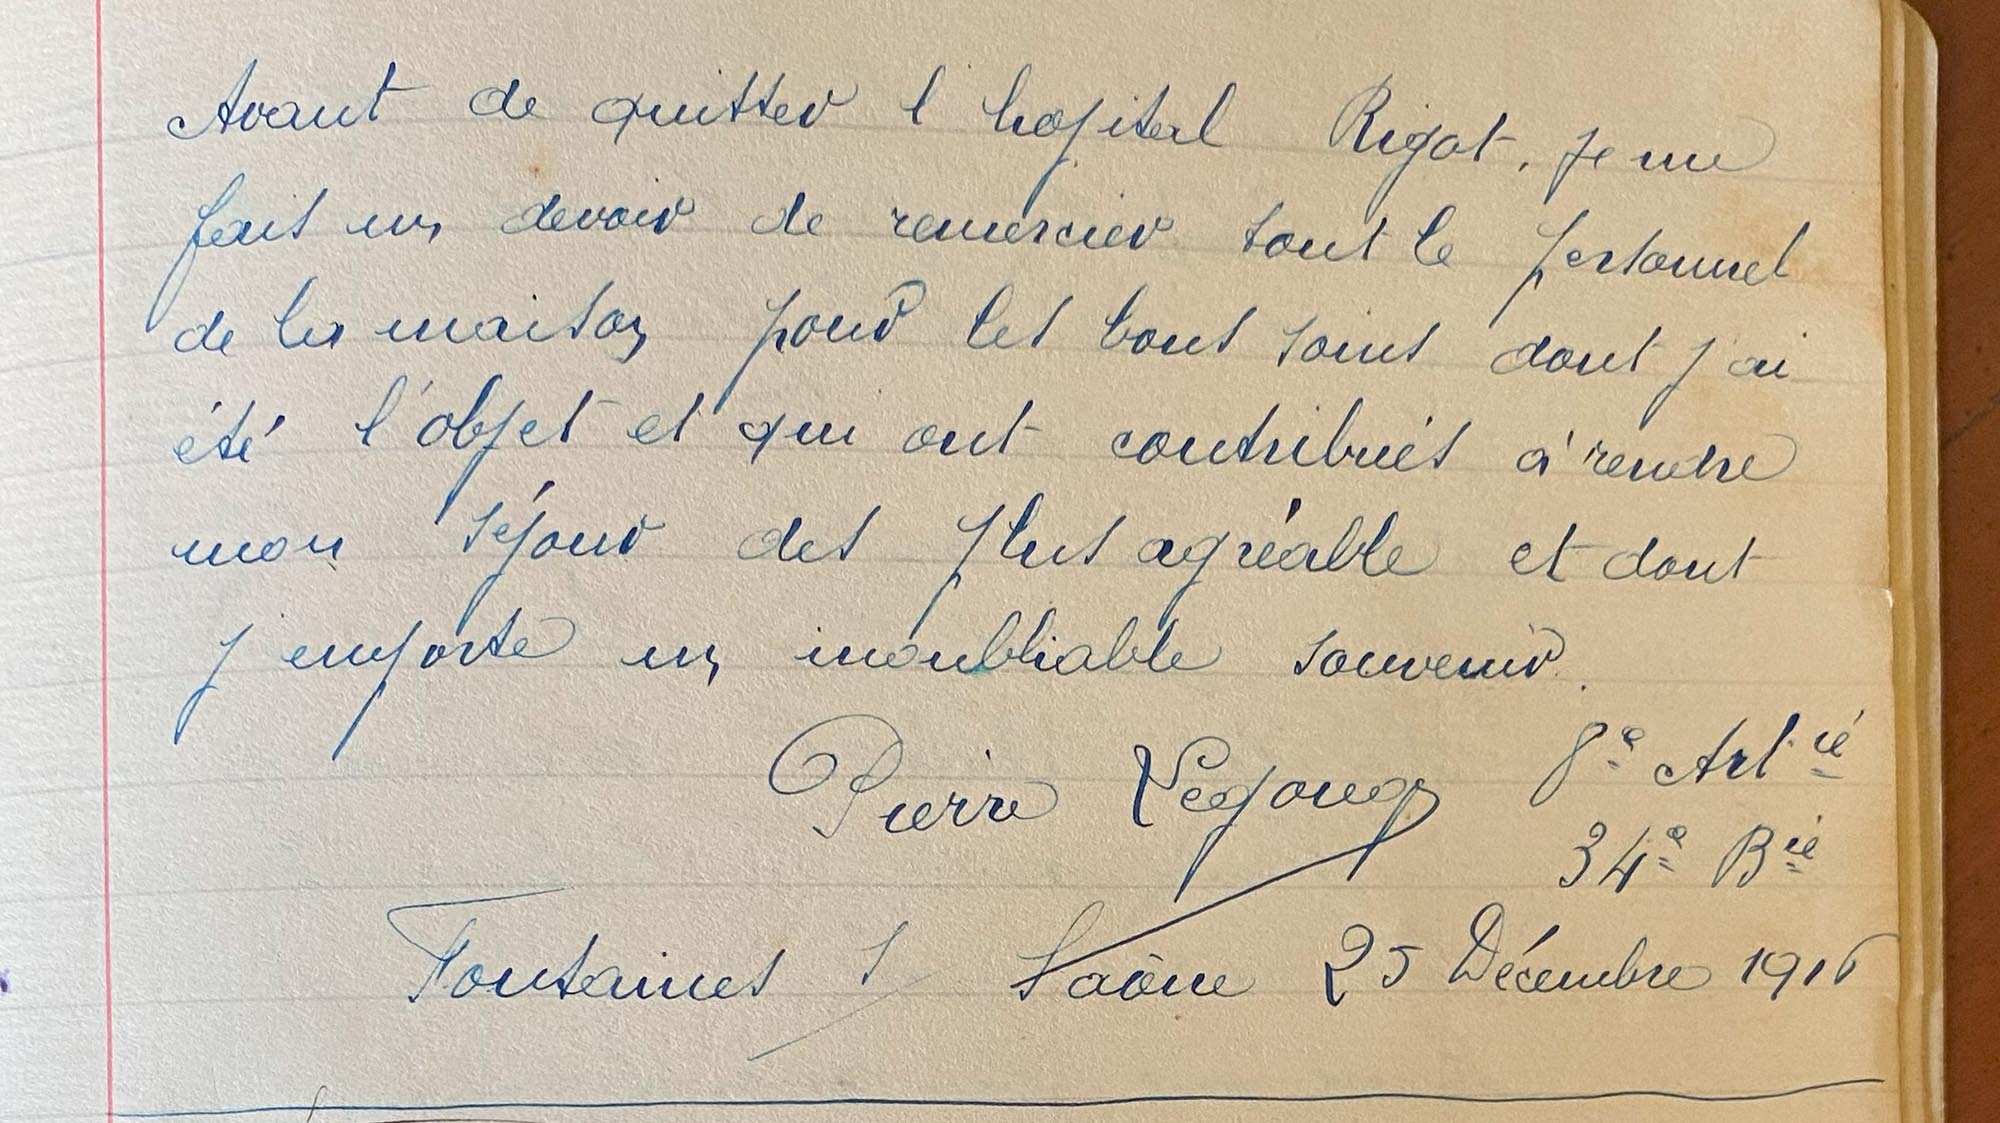 Avant de quitter l hopital Rigot, je me
fais un devoir de remercier tout le personnel
de la maison pour les bons soins dont j'ai
été l'objet et qui ont contribués à rendre
mon séjour des plus agréable et dont
j emporte un inoubliable souvenir.
Pierre 8e Artie
34e Bie
Fontaines s/ Saône 25 Décembre 1916